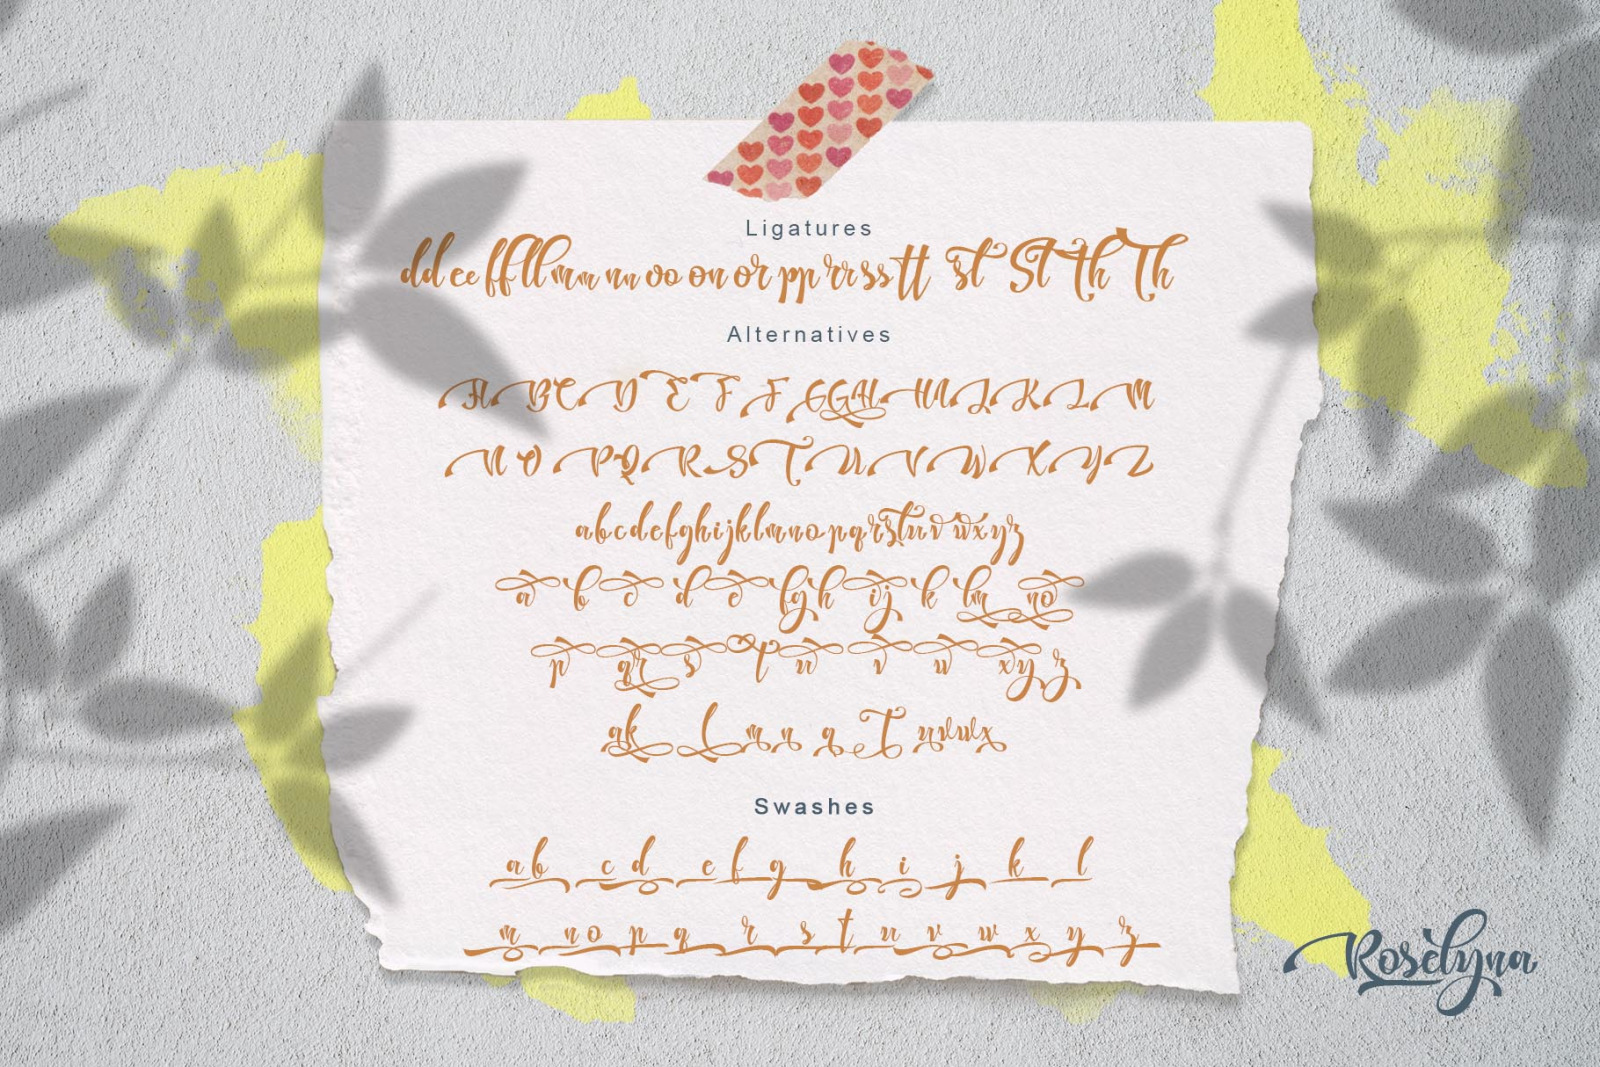 Ligatures
dd ee ff ll mm nn oo on or pp rr ss tt st St th Th
Alternatives
A B C D E F F G G H H I J K L M
N O P Q R S T U V W X Y Z
a b c d e f g h i j k l m n o p q r s t u v w x y z
a b c d e f g h i j k l m n o
p q r s t u v w x y z
a k l m n q T u v w x
Swashes
a b c d e f g h i j k l
m n o p q r s t u v w x y z
Roselyna